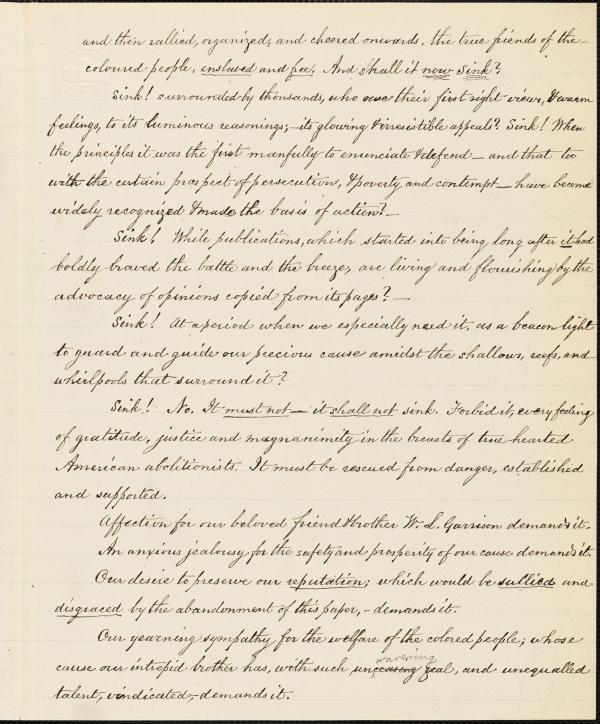 and then rallied, organized, and cheered onwards, the true friends of the
coloured people, enslaved and free. And shall it now sink?
Sink! surrounded by thousands, who owe their first right views, & warm
feelings, to its luminous reasonings;—its glowing & irresistible appeals? Sink! When
the principles it was the first manfully to enunciate & defend — and that too
with the certain prospect of persecution, & poverty and contempt — have become
widely recognized & made the basis of action? —
Sink! While publications, which started into being, long after it had
boldly braved the battle and the breeze, are living and flourishing by the
advocacy of opinions copied from its pages? —
Sink! At a period when we especially need it, as a beacon light
to guard and guide our precious cause amidst the shallows, reefs, and
whirlpools that surround it?
Sink! No. It must not — it shall not sink. Forbid it, every feeling
of gratitude, justice and magnanimity in the breasts of true hearted
American abolitionists. It must be rescued from danger, established
and supported.
Affection for our beloved friend & brother W. L. Garrison demands it.
An anxious jealousy for the safety and prosperity of our cause demands it.
Our desire to preserve our reputation; which would be sullied and
disgraced by the abandonment of this paper,— demands it.
Our yearning sympathy for the welfare of the colored people; whose
wavering
cause our intrepid brother has, with such unceasing zeal, and unequalled
talent, vindicated,— demands it.